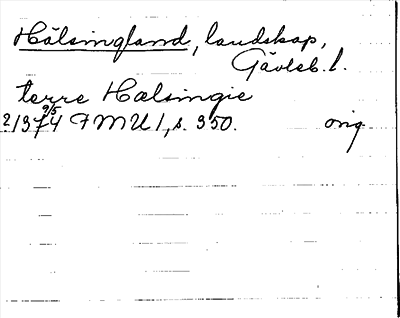 Hälsingland, landskap,
Gävleb. l.
terre Hælsingie
2/374 9/5 FMU 1, s. 350. orig